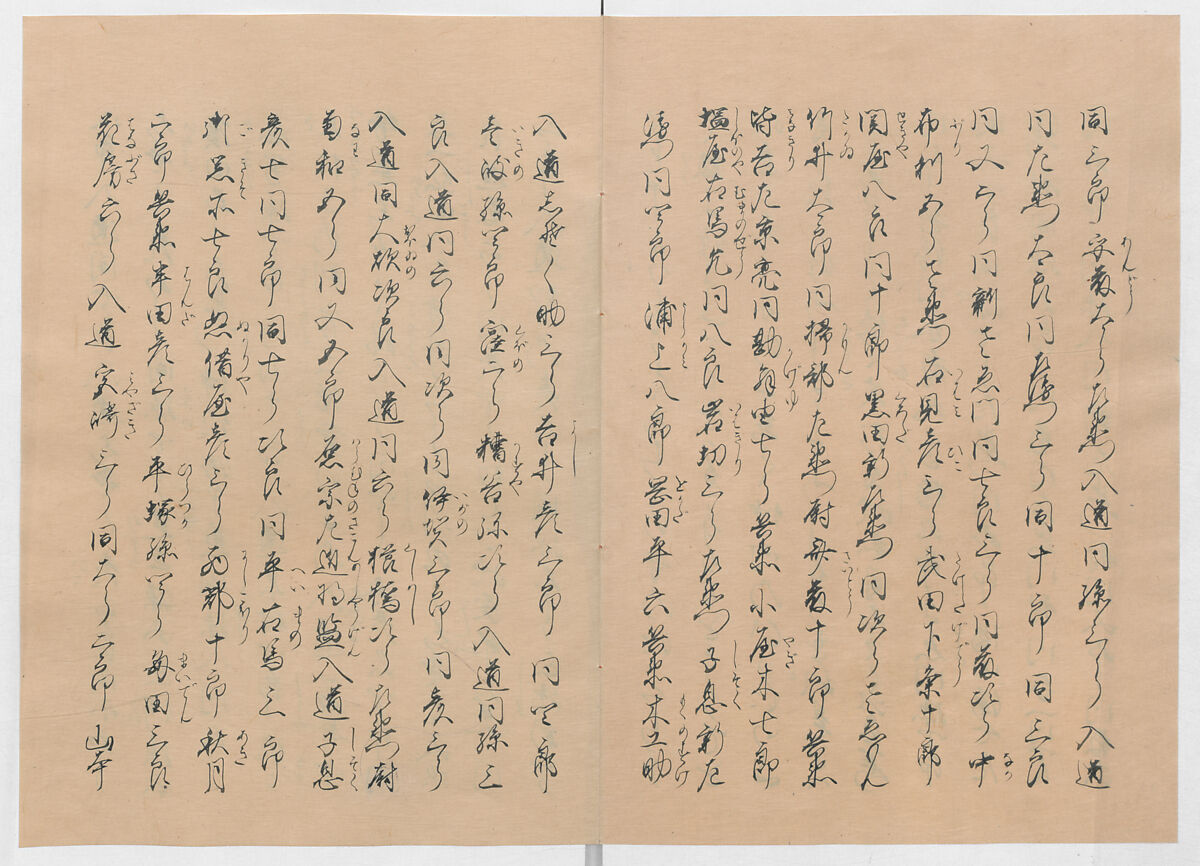 同三郎安藤太郎左衛門入道同孫三郎入道
同左衛門太郎同左衛門三郎同十郎同三郎
同又次郎同新左衛門同七郎三郎同藤次郎中
布利五郎左衛門石見彦三郎武田下条十郎
関屋八郎同十郎黒田新左衛門同次郎左衛門
竹井太郎同掃部左衛門尉斉藤十郎兵衛
皆吉左京亮同勘解由七郎兵衛小屋木七郎
塩屋右馬允同八郎岩切三郎左衛門子息新左
衛門同四郎浦上八郎岡田平六兵衛木工助
入道志介之助三郎吉井彦三郎同四郎
壱岐孫四郎窪二郎糟谷弥次郎入道同孫三
郎入道同六郎同次郎同伊賀三郎同彦三郎
入道同大炊次郎入道同六郎櫛橋次郎左衛門尉
南和五郎同又五郎原宗左近将監入道子息
彦七同七郎同七郎次郎同平右馬三郎
御器所七郎怒借屋彦三郎西郡十郎秋月
二郎兵衛半田彦三郎平塚孫四郎毎田三郎
花房六郎入道宮崎三郎同太郎二郎山本